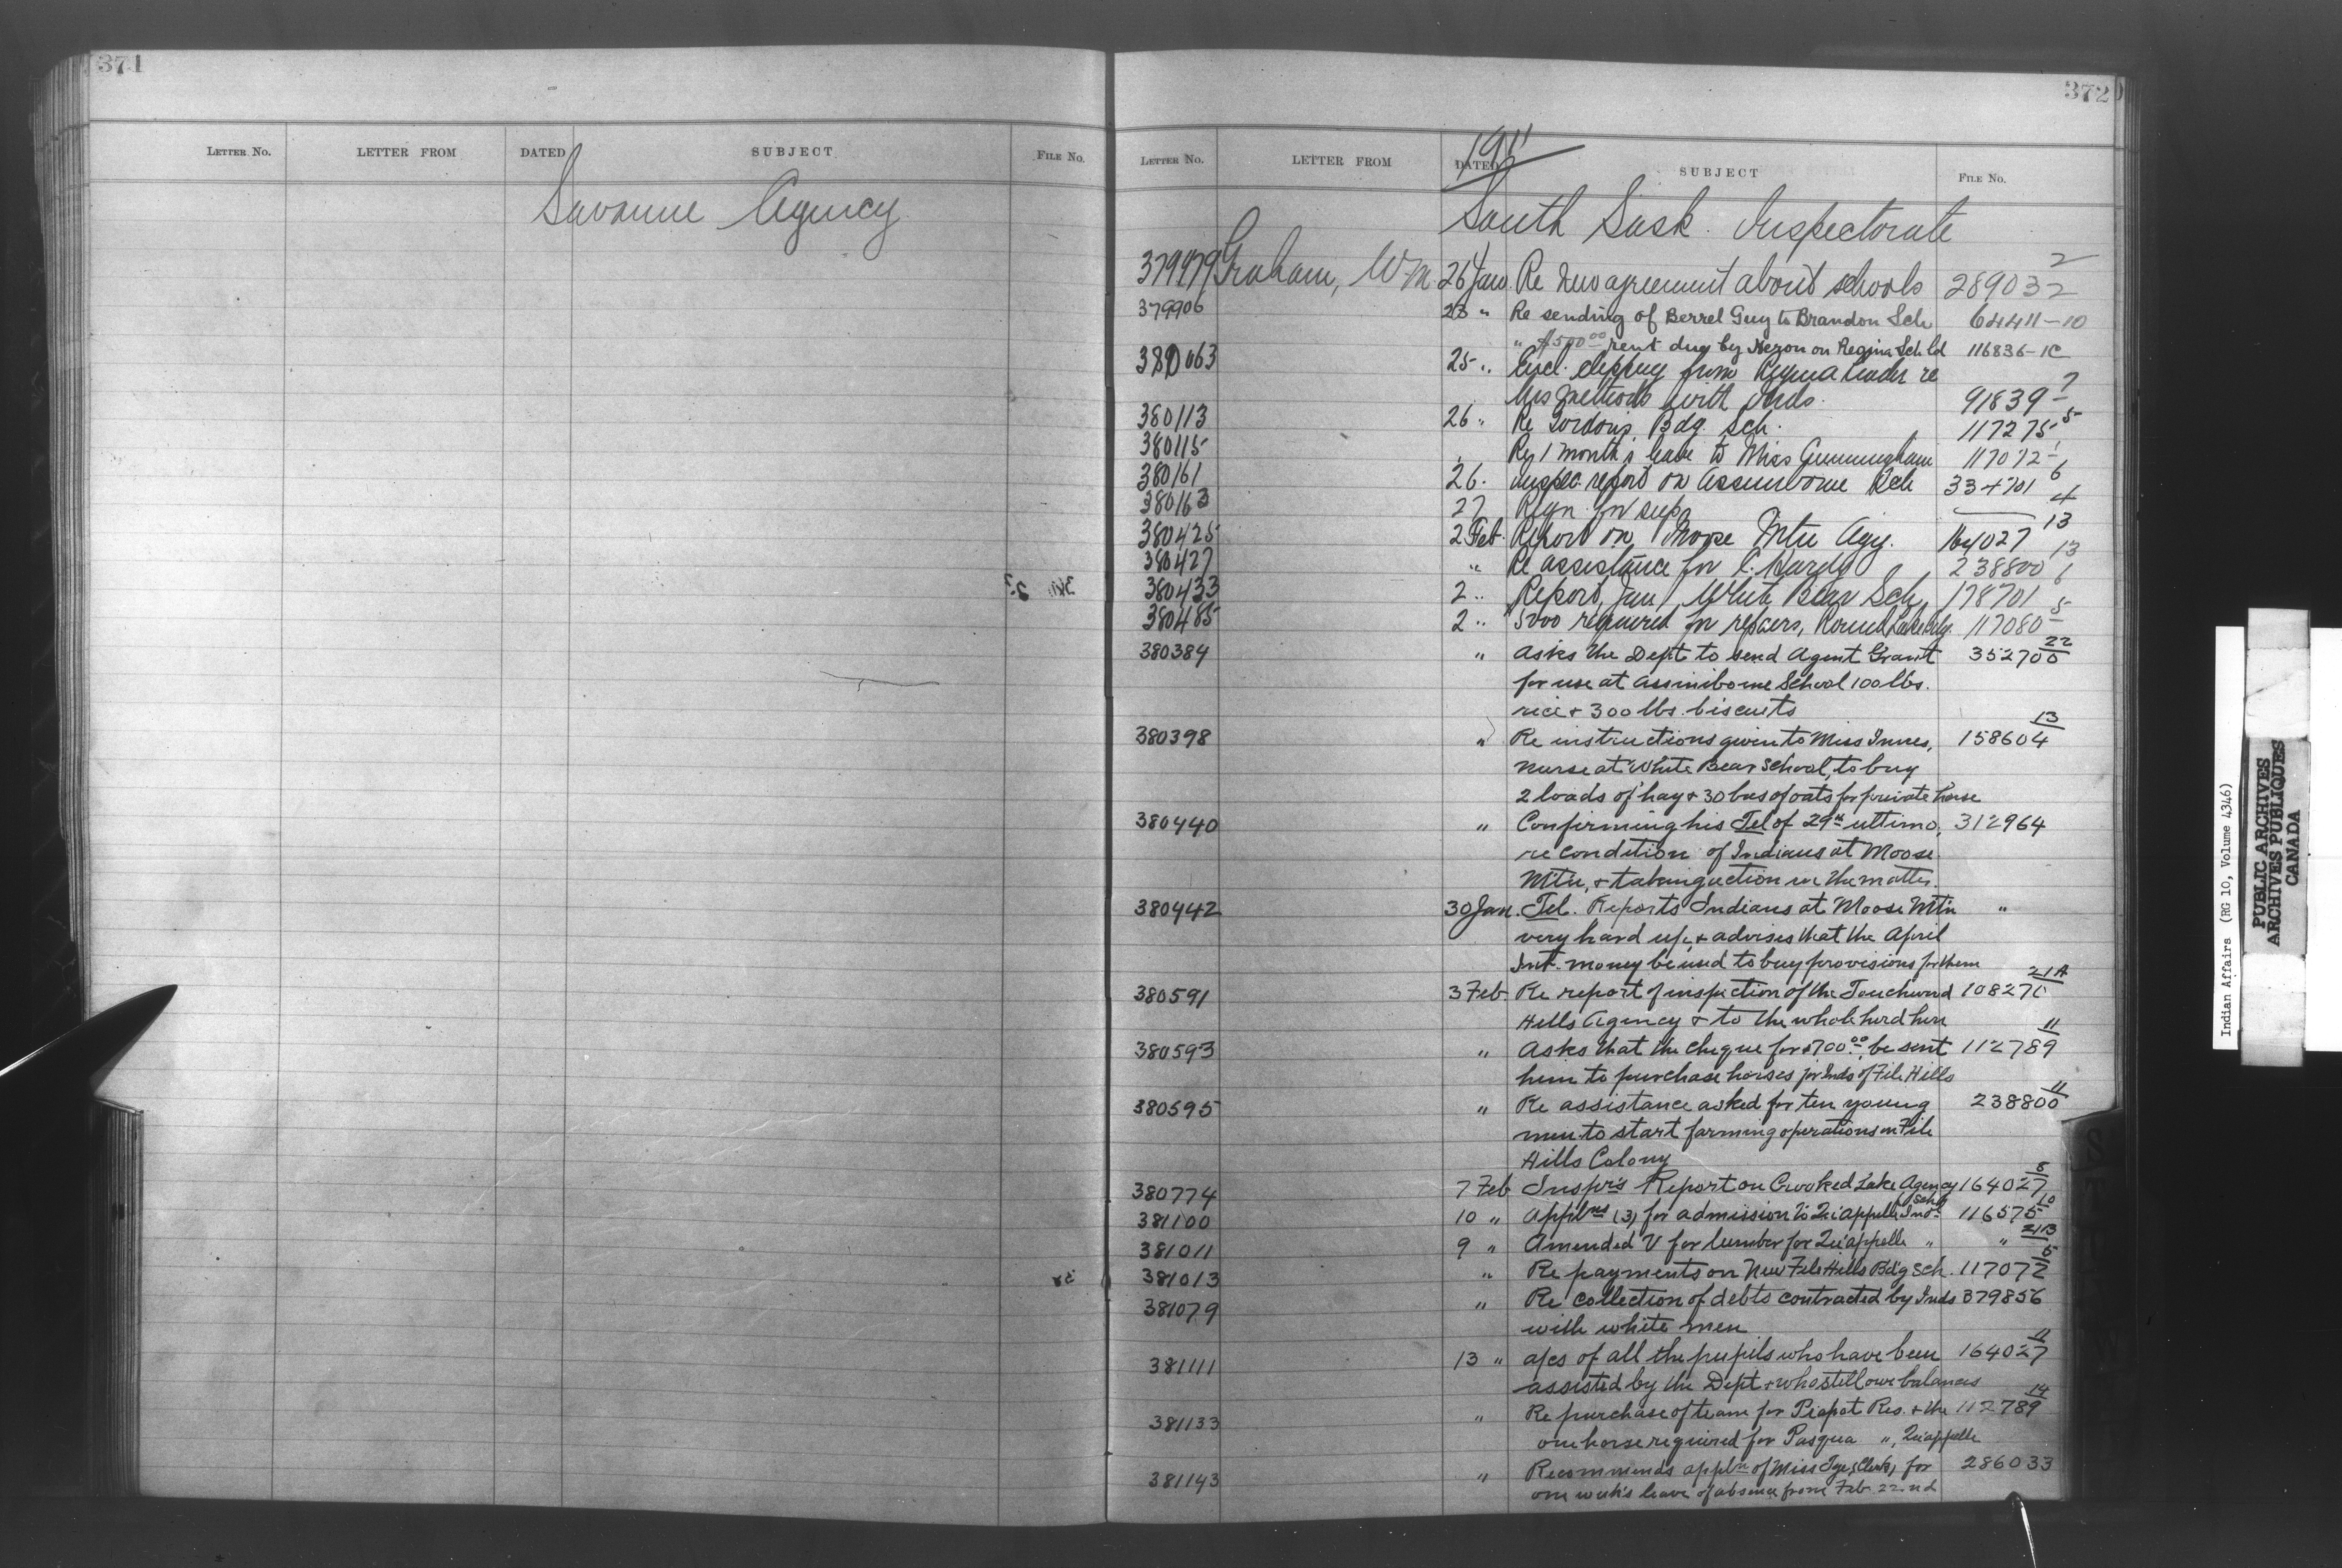 371
LETTER NO. LETTER FROM DATED SUBJECT FILE NO.
Savanne Agency
372
LETTER NO. LETTER FROM DATED SUBJECT FILE NO.
1911
South Sask. Inspectorate
Graham, W.M. 26 Jan. Re new agreement about schools 289032 2
379906 23 " Re sending of Berrel Guy to Brandon Sch 64411-10
" $500.00 rent due by on Regina Sch ld 116836-1C
380063 25 " Encl. clipping from Regina Leader re
his methods with Inds. 91839 7
380113 26 " Re Gordons Bdg. Sch. 117275 5
380115 " Re 1 month's leave to Miss Cunningham
380161 26 " Inspec. report on Assiniboine Sch 334701 6
380163 27 Reqn. for sup. 4
380425 2 Feb. Report on Moose Mtn Agy. 164027 13
380427 " Re assistance for C. 238800 13
380433 2 " Report, Jan, White Bear Sch, 178701 6
380485 2 " 5000 required for repairs, Round Lake Bdg. 117080 5
380384 " Asks the Dept to send Agent Grant 352700 22
for use at Assiniboine School 100 lbs.
rice & 300 lbs. biscuits
380398 " Re instructions given to Miss Innes, 158604 13
nurse at White Bear School, to buy
2 loads of hay & 30 bus of oats for private horse
380440 " Confirming his Tel of 29th ultimo, 312964
re condition of Indians at Moose
Mtn, & taking action in the matter.
380442 30 Jan. Tel. Reports Indians at Moose Mtn "
very hard up, & advises that the April
Int. money be used to buy provisions for them
380591 3 Feb Re report of inspection of the Touchwood 108270 21A
Hills Agency & to the whole herd here
380593 " Asks that the cheque for $700.00 be sent 112789 11
him to purchase horses for Inds of File Hills
380595 " Re assistance asked for ten young 238800 11
men to start farming operations on File
Hills Colony
380774 7 Feb Inspr's Report on Crooked Lake Agency 164027 5
381100 10 " Applns (3) for admission to Qu'appelle Ind'l Sch 116575 10
381011 9 " Amended V for lumber for Qu'appelle " " 21B
381013 " Re payments on New File Hills Bd'g Sch. 117072 5
381079 " Re collection of debts contracted by Inds 379856
with white men
381111 13 " a/cs of all the pupils who have been 164027 11
assisted by the Dept & who still owe balances
381133 " Re purchase of team for Piapot Res. & the 112789 14
one horse required for Pasqua ", Qu'appelle
381143 " Recommends appln of Miss , Clerk, for 286033
one week's leave of absence from Feb. 22nd
Indian Affairs (RG 10, Volume 4346)
PUBLIC ARCHIVES
ARCHIVES PUBLIQUES
CANADA